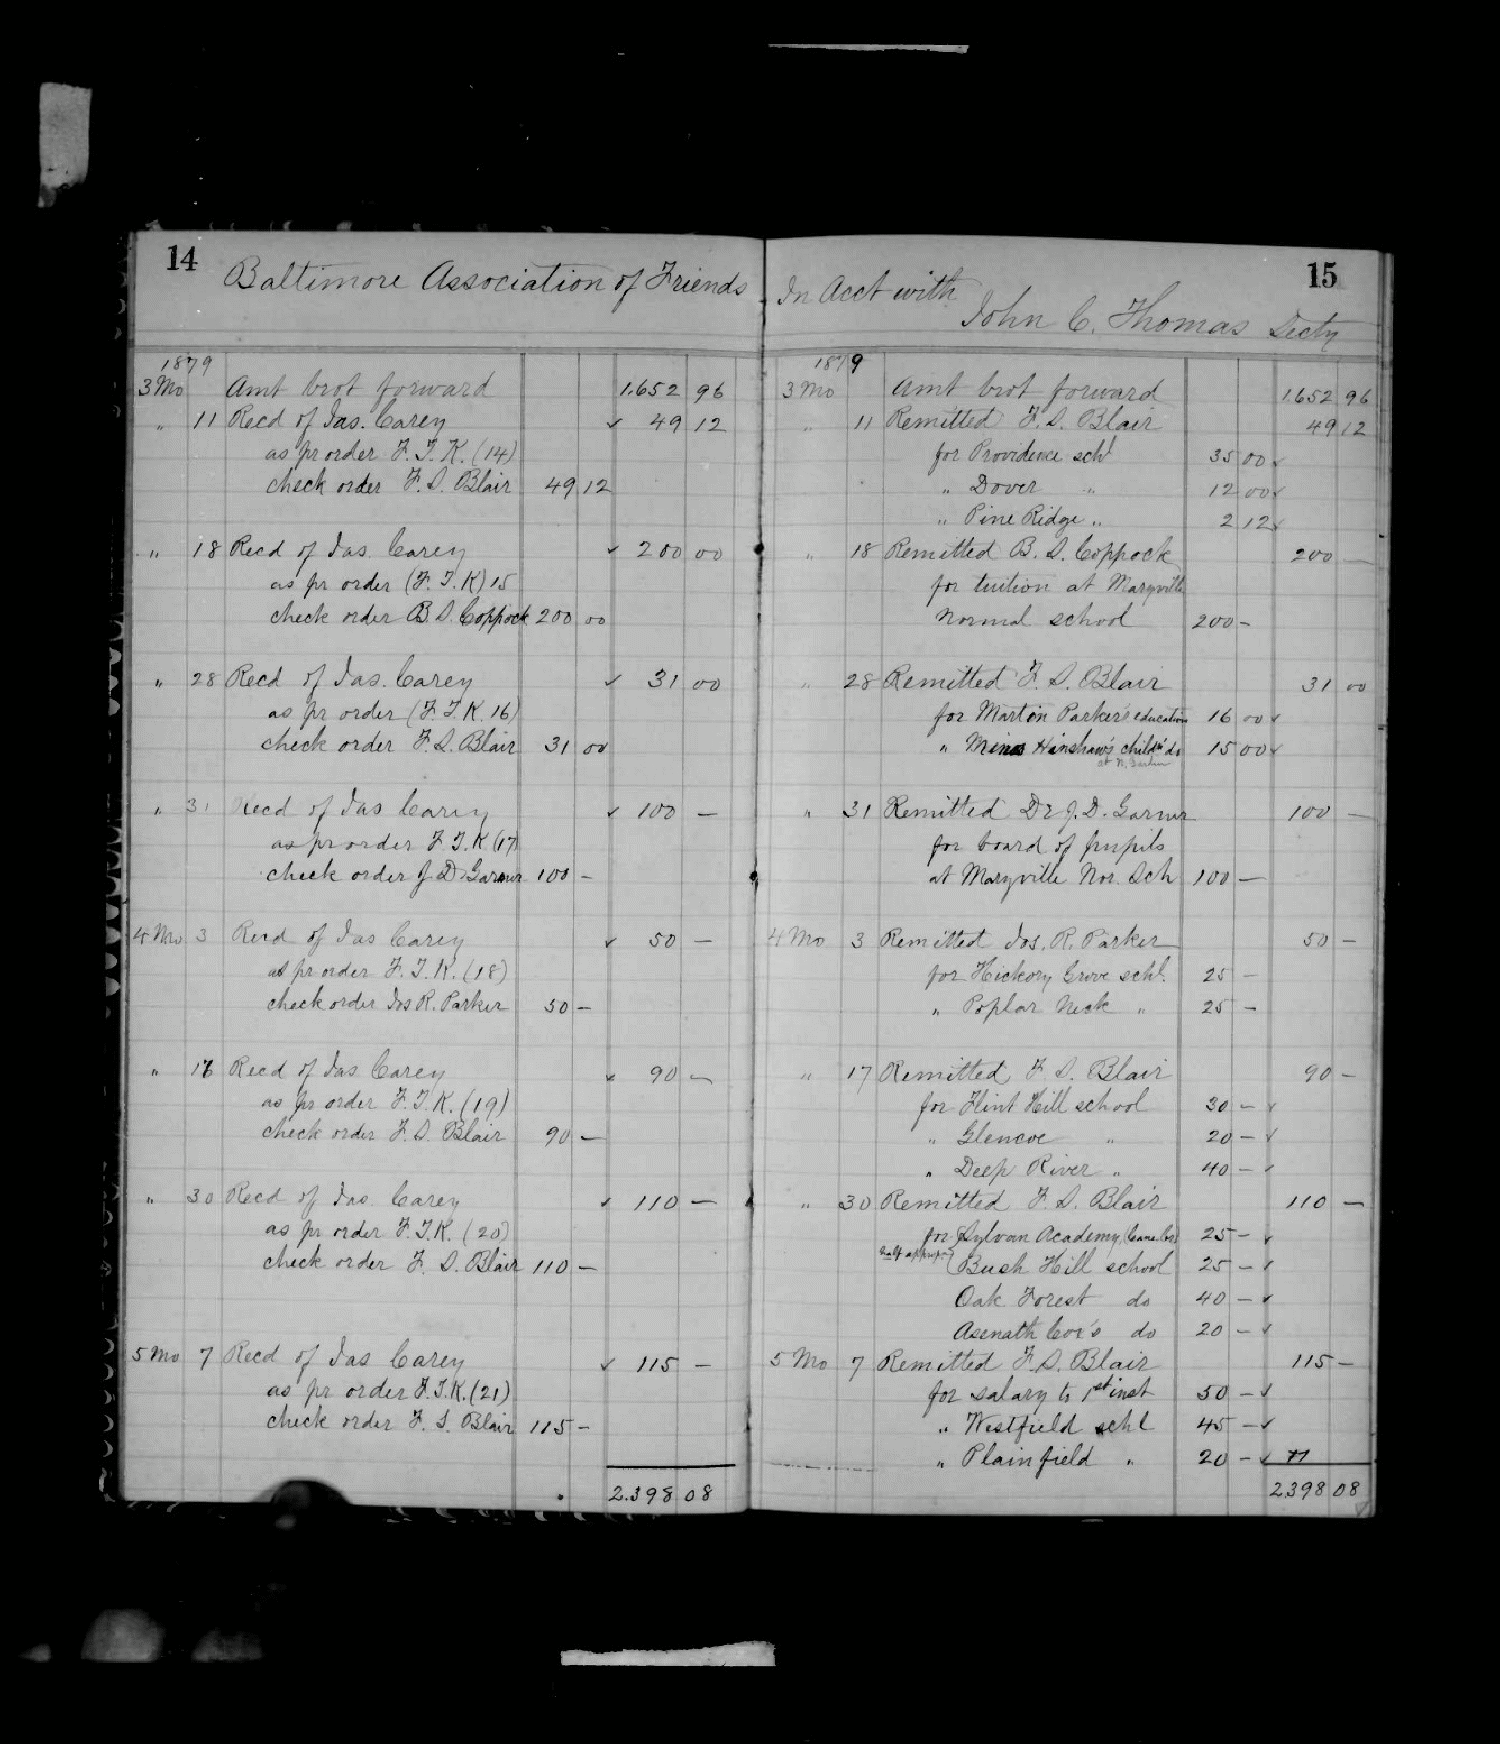 14
Baltimore Association of Friends
1879
3 Mo Amt brot forward 1.652 96
" 11 Recd of Jas. Carey ✓ 49 12
as pr order F. T. K. (14)
check order F. S. Blair 49 12
" 18 Recd of Jas. Carey ✓ 200 00
as pr order (F. T. K) 15
check order B. S. Coppock 200 00
" 28 Recd of Jas. Carey ✓ 31 00
as pr order (F. T. K. 16)
check order F. S. Blair 31 00
" 31 Recd of Jas Carey ✓ 100 —
as pr order F. T. K (17)
check order J. D. Garner 100 —
4 Mo 3 Recd of Jas Carey ✓ 50 —
as pr order F. T. K. (18)
check order Jos R. Parker 50 —
" 16 Recd of Jas Carey ✓ 90 —
as pr order F. T. K. (19)
check order F. S. Blair 90 —
" 30 Recd of Jas. Carey ✓ 110 —
as pr order F. T. K. (20)
check order F. S. Blair 110 —
5 Mo 7 Recd of Jas Carey ✓ 115 —
as pr order F. T. K. (21)
check order F. S. Blair 115 —
2.398 08
15
In Acct with
John C. Thomas Secty
1879
3 Mo Amt brot forward 1.652 96
" 11 Remitted F. S. Blair 49 12
for Providence schl 35 00 ✓
" Dover " 12 00 ✓
" Pine Ridge " 2 12 ✓
" 18 Remitted B. S. Coppock 200 —
for tuition at Maryville
Normal school 200 —
" 28 Remitted F. S. Blair 31 00
for Martin Parker's education 16 00 ✓
" Hinshaw's child do 15 00 ✓
at N. Garden
" 31 Remitted Dr J. D. Garner 100 —
for board of pupils
at Maryville Nor. Sch 100 —
4 Mo 3 Remitted Jos. R. Parker 50 —
for Hickory Grove schl. 25 —
" Poplar Neck " 25 —
" 17 Remitted F. S. Blair 90 —
for Flint Hill school 30 — ✓
" Glencoe " 20 — ✓
" Deep River " 40 — ✓
" 30 Remitted F. S. Blair 110 —
for Sylvan Academy, (Cane Cr) 25 — ✓
half approp
Bush Hill school 25 — ✓
Oak Forest do 40 — ✓
Asenath Cox's do 20 — ✓
5 Mo 7 Remitted F. S. Blair 115 —
for salary to 1st inst 50 — ✓
" Westfield schl 45 — ✓
" Plainfield " 20 — ✓
2398 08